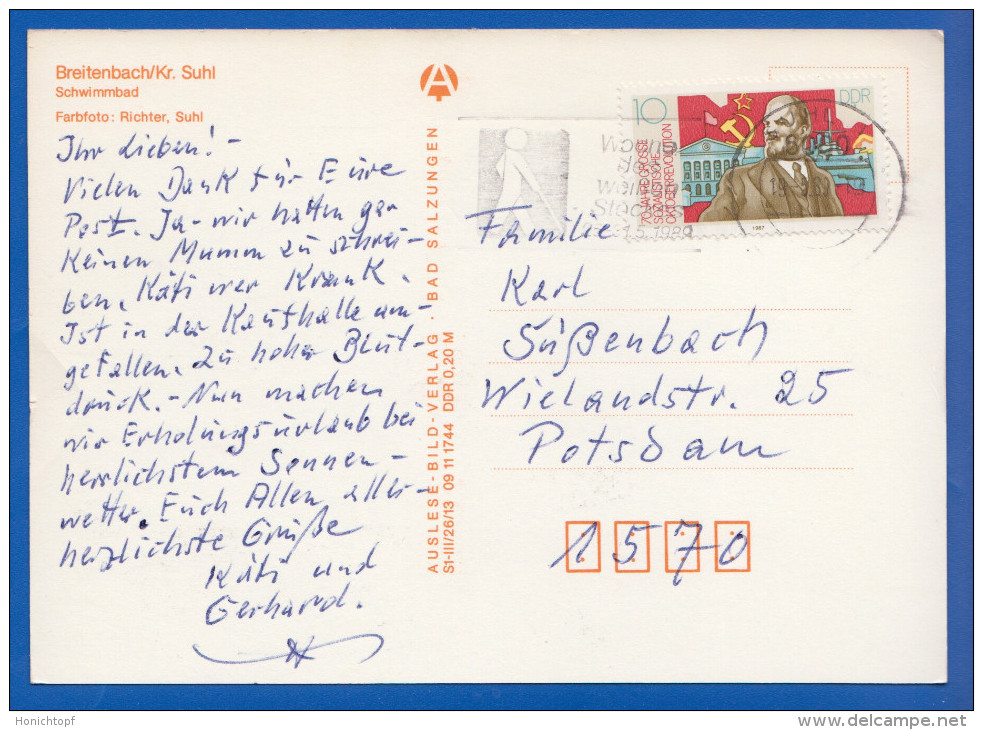 Breitenbach/Kr. Suhl
Schwimmbad
Farbfoto: Richter, Suhl
Ihr Lieben! -
Vielen Dank für Eure
Post. Ja - wir hatten gar
keinen Mumm zu schrei-
ben, Käti war krank.
Ist in der Kaufhalle um-
gefallen. Zu hoher Blut-
druck. - Nun machen
wir Erholungsurlaub bei
herrlichstem Sonnen-
wetter. Euch Allen aller-
herzlichste Grüße
Käti und
Gerhard.
AUSLESE-BILD-VERLAG · BAD SALZUNGEN
S1-III/26/13 09 11 1744 DDR 0,20 M
Woche
des
weißen
Stockes
5.1989
10
DDR
70 JAHRE GROSSE
SOZIALISTISCHE
OKTOBERREVOLUTION
1987
Familie
Karl
Süßenbach
Wielandstr. 25
Potsdam
1570
Honichtopf
delcampe.net